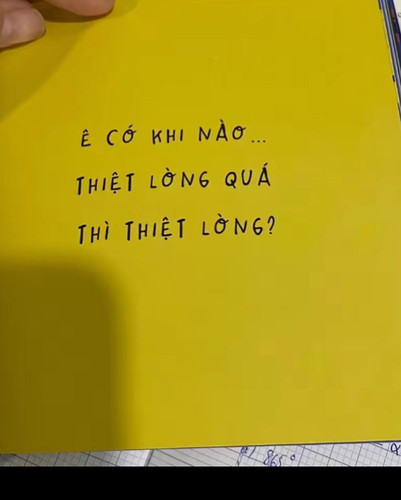 Ê CÓ KHI NÀO...
THIỆT LÒNG QUÁ
THÌ THIỆT LÒNG?
865°